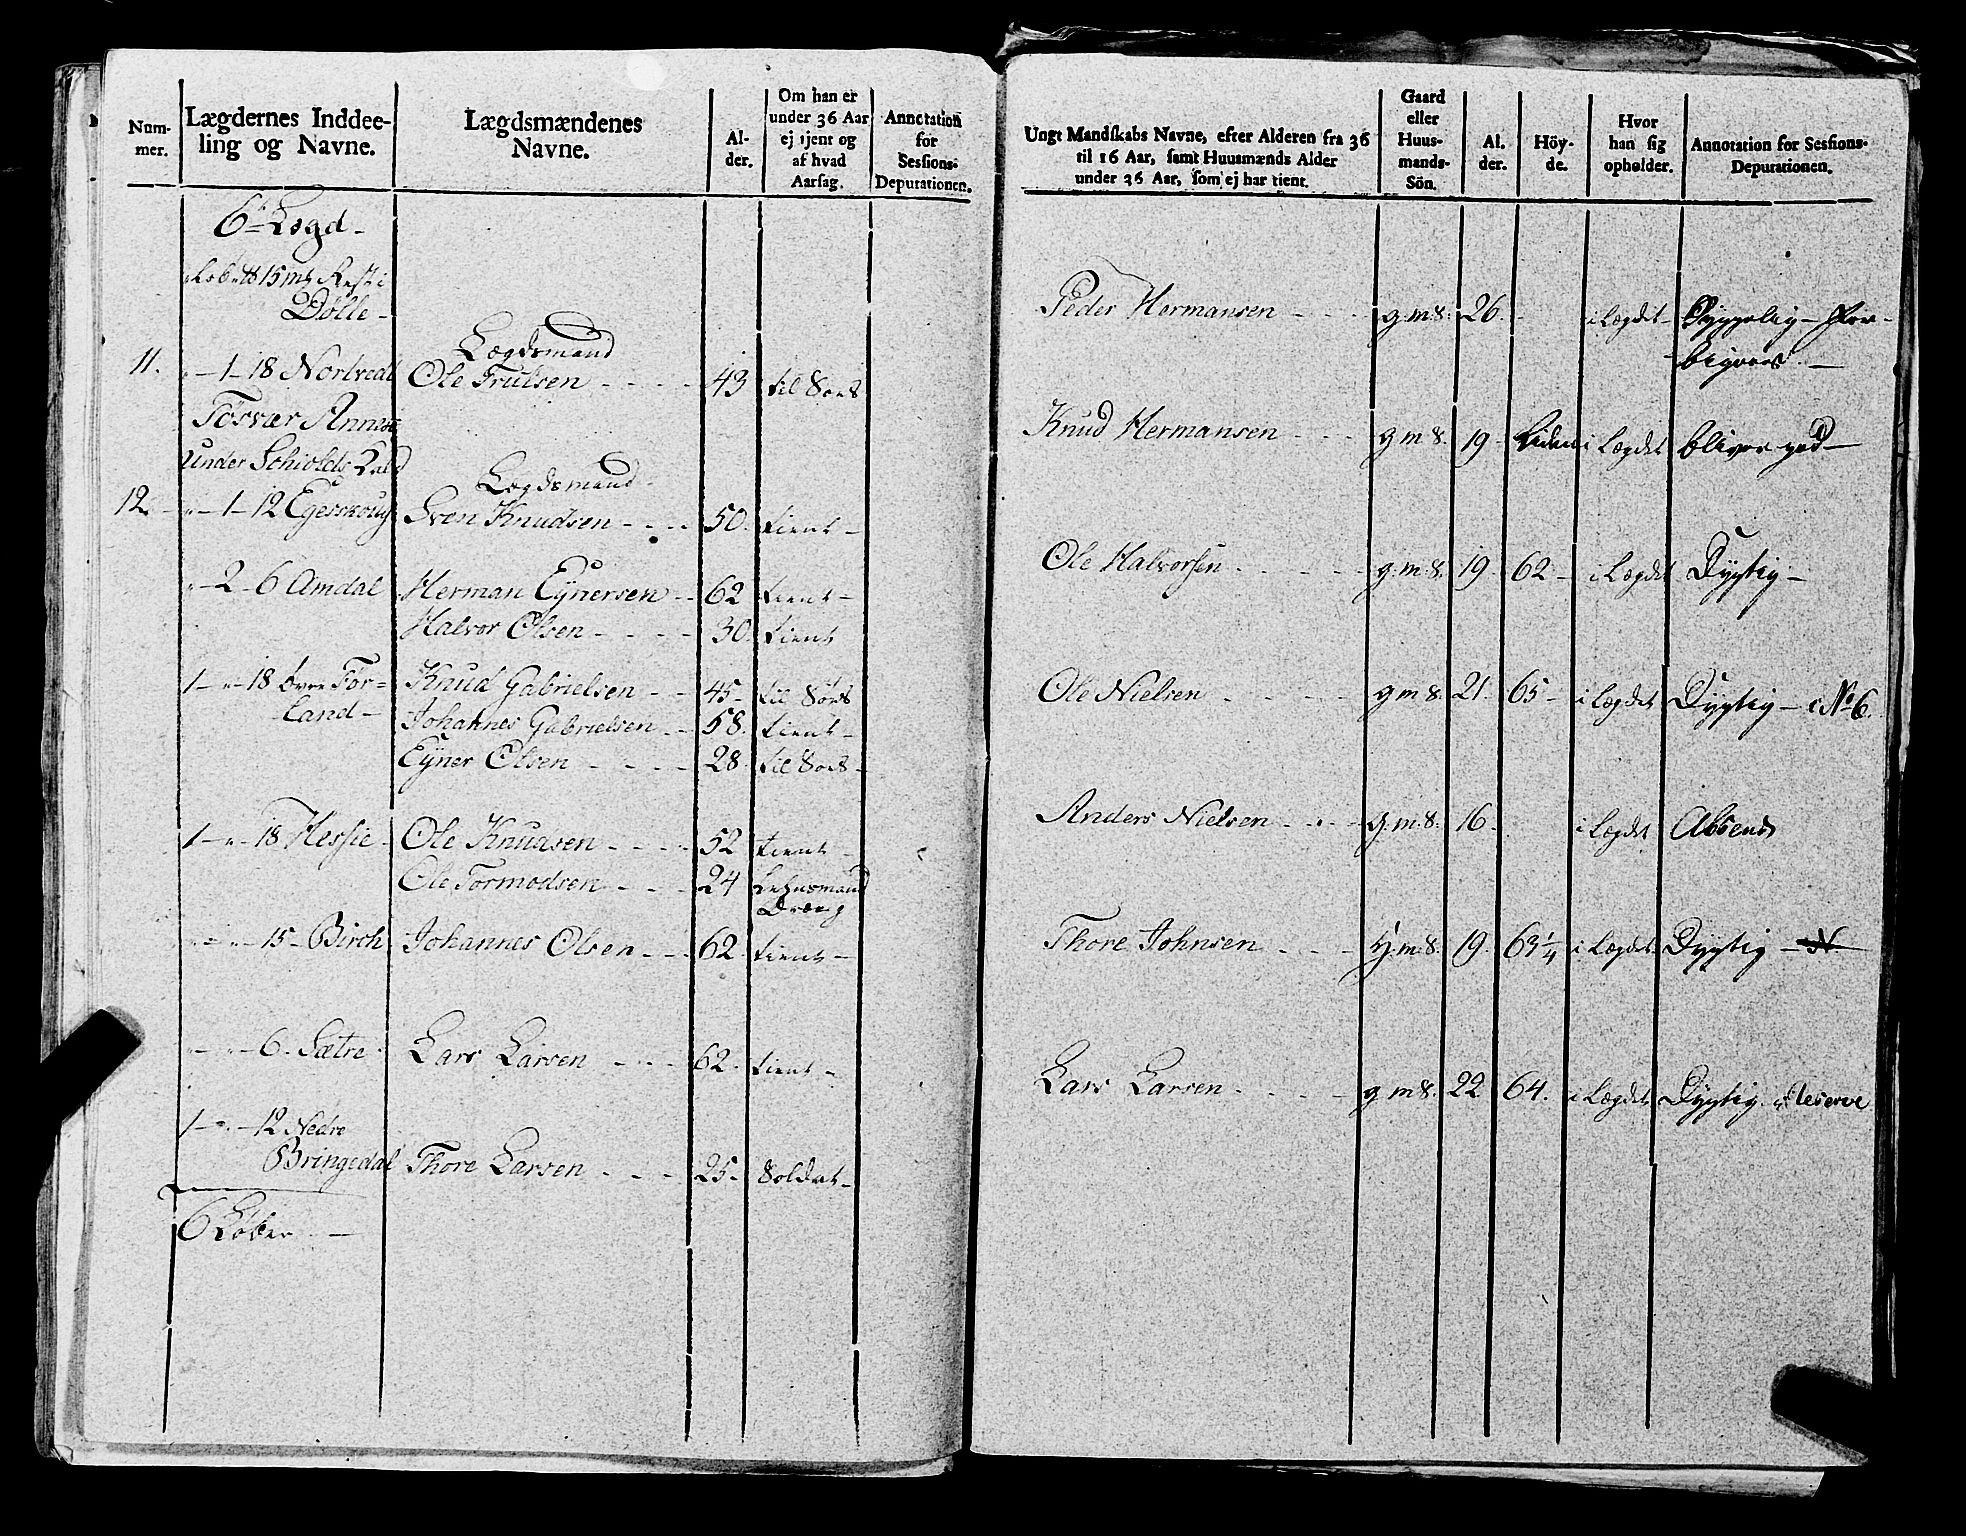 Num-
mer.
Lægdernes Inddee-
ling og Navne.
Lægdsmændenes
Navne.
Al-
der.
Om han er
under 36 Aar
ej tjent og
af hvad
Aarsag.
Annotation
for
Sessions-
Deputationen.
6te Lægd
Løb 15 mk Rest i
Dølle
Lægdsmand
11. 1 18 Nortvedt Ole Trulsen 43 til Søes
Tosvær Annex
under Schiolds Kald
Lægdsmand
12 1 12 Egesskoug Sven Knudsen 50 tient
2 6 Amdal Herman Eynersen 62 tient
Halvor Olsen 30 tient
1 18 over For-
land
Knud Gabrielsen 45 til Søes
Johannes Gabrielsen 58 tient
Eyner Olsen 28 til Søes
1 18 Hessie Ole Knudsen 52 tient
Ole Tormodsen 24 Lehnsmand
Dræng
15 Birch Johannes Olsen 62 tient
6 Sætre Lars Larsen 62 tient
1 12 Nedre
Bringedal Thore Larsen 25 Soldat
6 Løber
Ungt Mandskabs Navne, efter Alderen fra 36
til 16 Aar, samt Huusmænds Alder
under 36 Aar, som ej har tient.
Gaard
eller
Huus-
mands-
Sön.
Al.
der.
Höy-
de.
Hvor
han sig
opholder.
Annotation for Sessions-
Deputationen.
Peder Hermansen g.m.s. 26 i Lægdet
Knud Hermansen g.m.s. 19 Liden i Lægdet bliver ved
Ole Halvorsen g.m.s. 19 62 i Lægdet Dygtig
Ole Nielsen g.m.s. 21 65 i Lægdet Dygtig i No 6.
Anders Nielsen g.m.s. 16 i Lægdet Absend
Thore Johnsen H.m.s. 19 63 1/4 i Lægdet Dygtig
Lars Larsen g.m.s. 22 64. i Lægdet Dygtig Reserve